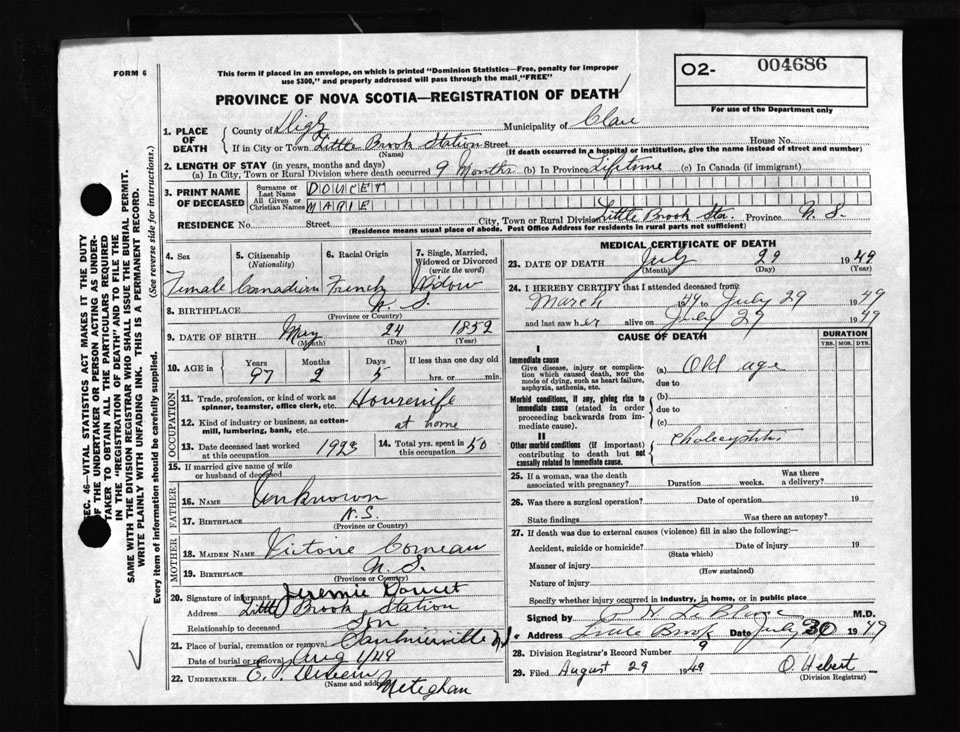 FORM 6
This form if placed in an envelope, on which is printed "Dominion Statistics—Free, penalty for improper
use $300," and properly addressed will pass through the mail "FREE"
PROVINCE OF NOVA SCOTIA—REGISTRATION OF DEATH
O2- 004686
For use of the Department only
SEC. 46—VITAL STATISTICS ACT MAKES IT THE DUTY
OF THE UNDERTAKER OR PERSON ACTING AS UNDER-
TAKER TO OBTAIN ALL THE PARTICULARS REQUIRED
IN THE "REGISTRATION OF DEATH" AND TO FILE THE
SAME WITH THE DIVISION REGISTRAR WHO SHALL ISSUE THE BURIAL PERMIT.
WRITE PLAINLY WITH UNFADING INK. THIS IS A PERMANENT RECORD.
Every item of information should be carefully supplied. (See reverse side for instructions.)
1. PLACE OF DEATH
County of Digby Municipality of Clare
If in City or Town Little Brook Station Street House No.
(Name) (If death occurred in a hospital or institution, give the name instead of street and number)
2. LENGTH OF STAY (in years, months and days)
(a) In City, Town or Rural Division where death occurred 9 Months (b) In Province Lifetime (c) In Canada (if immigrant)
3. PRINT NAME OF DECEASED
Surname or Last Name DOUCET
All Given or Christian Names MARIE
RESIDENCE No. Street City, Town or Rural Division Little Brook Sta. Province N. S.
(Residence means usual place of abode. Post Office Address for residents in rural parts not sufficient)
4. Sex 5. Citizenship (Nationality) 6. Racial Origin 7. Single, Married, Widowed or Divorced (write the word)
Female Canadian French Widow
8. BIRTHPLACE N. S.
(Province or Country)
9. DATE OF BIRTH May 24 1852
(Month) (Day) (Year)
10. AGE in Years Months Days If less than one day old
97 2 5 hrs. or min.
OCCUPATION
11. Trade, profession, or kind of work as spinner, teamster, office clerk, etc. Housewife
12. Kind of industry or business, as cotton-mill, lumbering, bank, etc. at home
13. Date deceased last worked at this occupation 1923 14. Total yrs. spent in this occupation 50
15. If married give name of wife or husband of deceased
FATHER
16. NAME Unknown
17. BIRTHPLACE N.S.
(Province or Country)
MOTHER
18. MAIDEN NAME Victoire Comeau
19. BIRTHPLACE N. S.
(Province or Country)
20. Signature of informant Jeremie Doucet
Address Little Brook Station
Relationship to deceased Son
21. Place of burial, cremation or removal Saulnierville N.S
Date of burial or removal Aug 1/49
22. UNDERTAKER E. J.
(Name and address) Meteghan
MEDICAL CERTIFICATE OF DEATH
23. DATE OF DEATH July 29 1949
(Month) (Day) (Year)
24. I HEREBY CERTIFY that I attended deceased from
March 1949 to July 29 1949
and last saw her alive on July 29 1949
CAUSE OF DEATH DURATION
YRS. MOS. DYS.
I
Immediate cause
Give disease, injury or complication which caused death, not the mode of dying, such as heart failure, asphyxia, asthenia, etc.
(a) Old age
due to
Morbid conditions, if any, giving rise to immediate cause (stated in order proceeding backwards from immediate cause).
(b)
due to
(c)
II
Other morbid conditions (if important) contributing to death but not causally related to immediate cause.
Cholecystitis
25. If a woman, was the death associated with pregnancy? Duration weeks. Was there a delivery?
26. Was there a surgical operation? Date of operation 19
State findings Was there an autopsy?
27. If death was due to external causes (violence) fill in also the following:—
Accident, suicide or homicide? Date of injury 19
(State which)
Manner of injury
(How sustained)
Nature of injury
Specify whether injury occurred in industry, in home, or in public place
Signed by P. H. LeBlanc M.D.
Address Little Brook Date July 30 1949
28. Division Registrar's Record Number 9
29. Filed August 29 1949 O. Hebert
(Division Registrar)